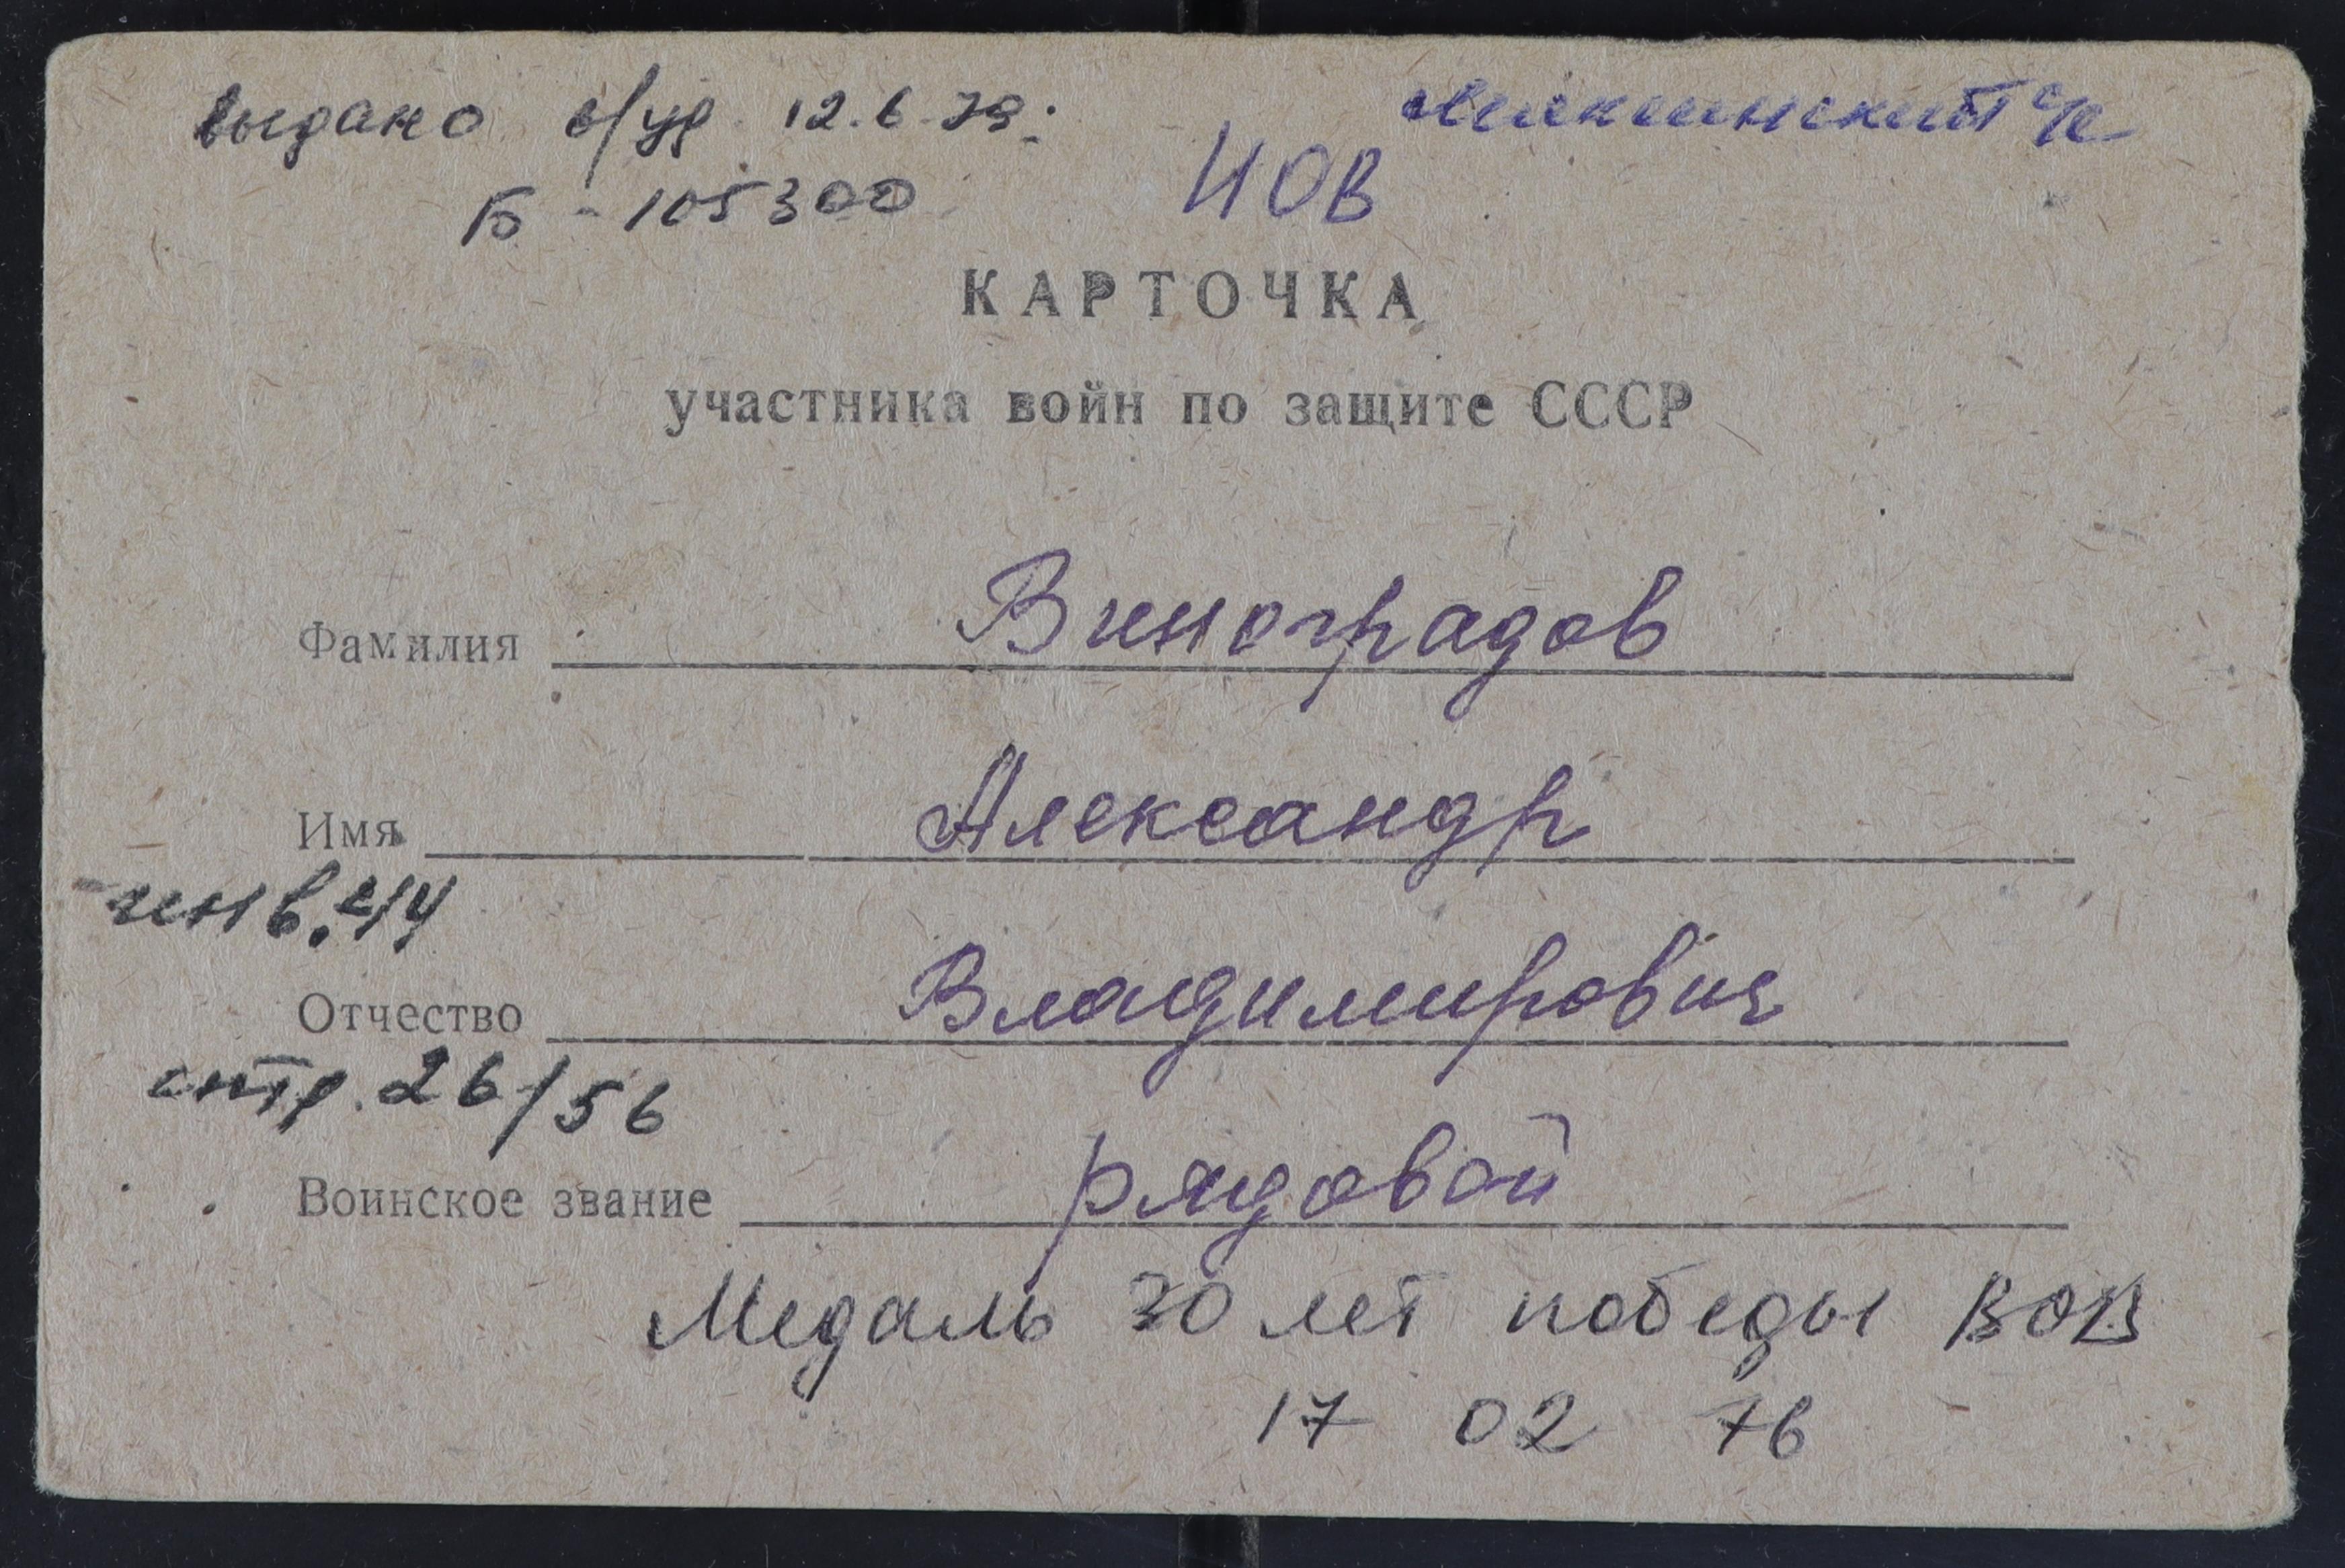 выдано б/уд. 12.6.79:
Б - 105300
ИОВ
КАРТОЧКА
участника войн по защите СССР
Фамилия Виноградов
Имя Александр
инв.
Отчество Владимирович
стр. 26/56
Воинское звание рядовой
Медаль 30 лет победы ВОВ
17 02 76